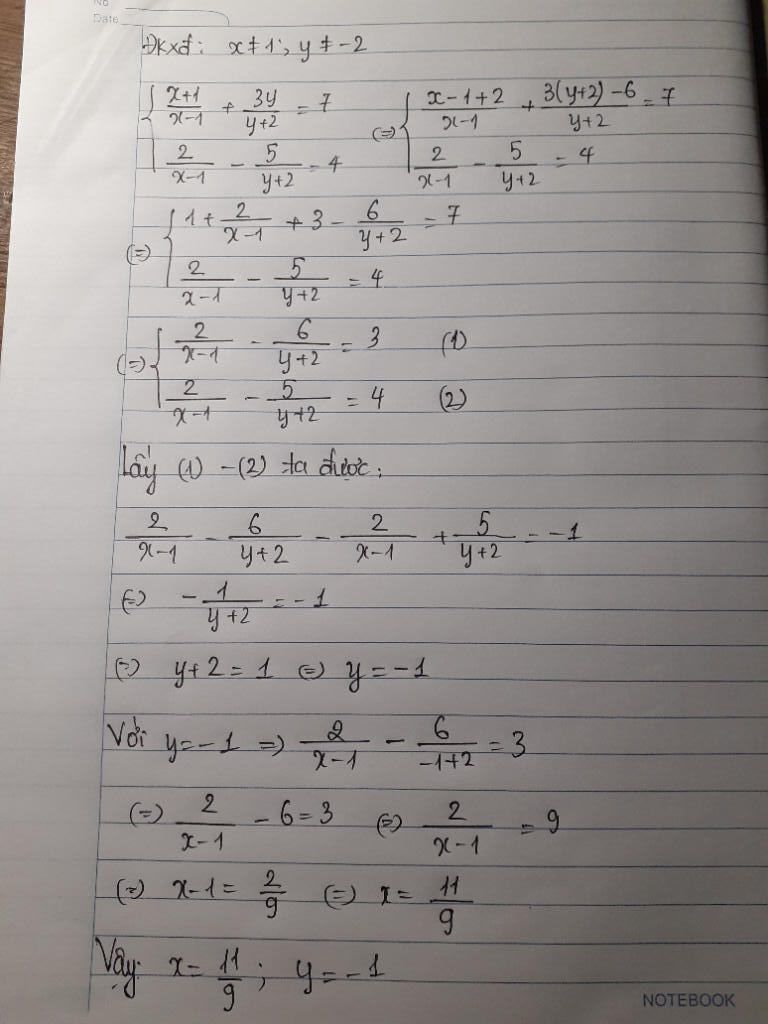 No
Date
ĐKXĐ: x ≠ 1; y ≠ -2
{ (x+1)/(x-1) + 3y/(y+2) = 7 (=) { (x-1+2)/(x-1) + (3(y+2)-6)/(y+2) = 7
{ 2/(x-1) - 5/(y+2) = 4 { 2/(x-1) - 5/(y+2) = 4
(=) { 1 + 2/(x-1) + 3 - 6/(y+2) = 7
{ 2/(x-1) - 5/(y+2) = 4
(=) { 2/(x-1) - 6/(y+2) = 3 (1)
{ 2/(x-1) - 5/(y+2) = 4 (2)
Lấy (1) - (2) ta được:
2/(x-1) - 6/(y+2) - 2/(x-1) + 5/(y+2) = -1
(=) -1/(y+2) = -1
(=) y+2 = 1 (=) y = -1
Với y = -1 => 2/(x-1) - 6/(-1+2) = 3
(=) 2/(x-1) - 6 = 3 (=) 2/(x-1) = 9
(=) x-1 = 2/9 (=) x = 11/9
Vậy: x = 11/9; y = -1
NOTEBOOK